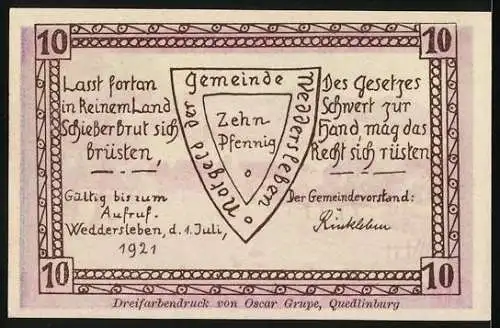 10
10
Lasst fortan
in Keinem Land
Schieberbrut sich
brüsten,
Gültig bis zum
Aufruf.
Weddersleben, d. 1. Juli,
1921
Notgeld der Gemeinde Weddersleben
Zehn
Pfennig
Des Gesetzes
Schwert zur
Hand, mag das
Recht sich rüsten.
Der Gemeindevorstand:
10
10
Dreifarbendruck von Oscar Grupe, Quedlinburg